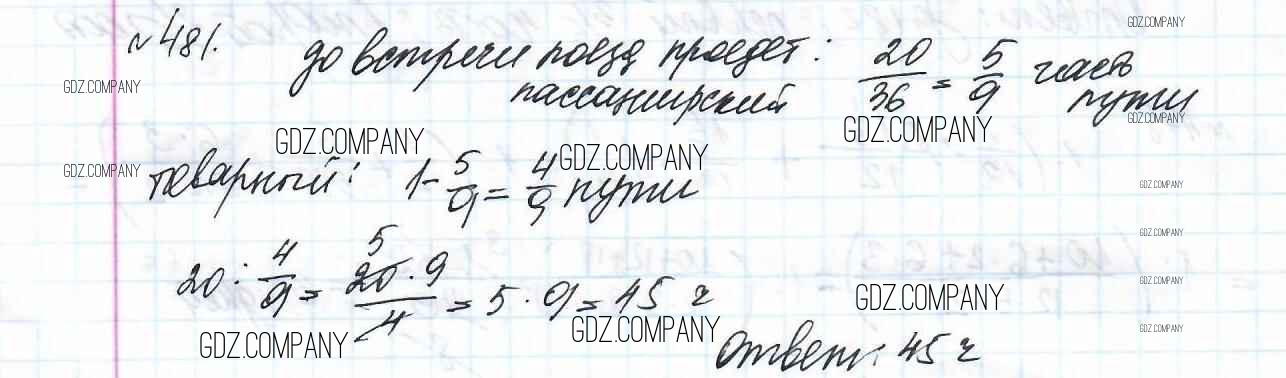 GDZ.COMPANY
№481. до встречи поезд проедет: 20/36 = 5/9 часть
пассажирский пути
GDZ.COMPANY
GDZ.COMPANY GDZ.COMPANY GDZ.COMPANY
GDZ.COMPANY GDZ.COMPANY
товарный: 1 - 5/9 = 4/9 пути
GDZ.COMPANY
GDZ.COMPANY
20 : 4/9 = 20 · 9/4 = 5 · 9 = 45 ч
5
GDZ.COMPANY
GDZ.COMPANY
GDZ.COMPANY GDZ.COMPANY GDZ.COMPANY
Ответ: 45 ч